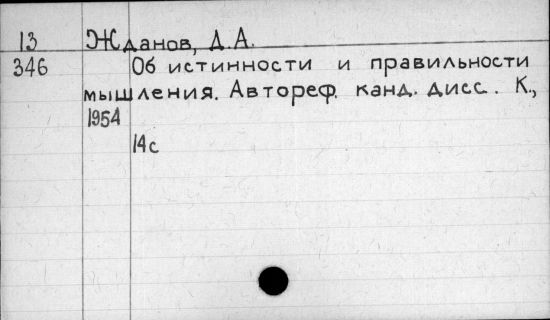 13 Жданов, Д.А.
346 Об истинности и правильности
мышления. Автореф. канд. дисс. К.,
1954
14с